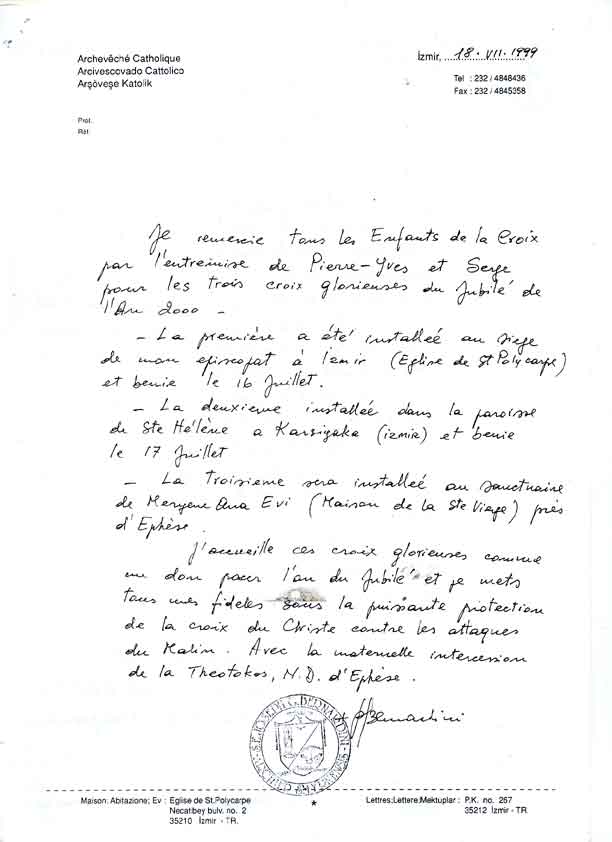 Archevêché Catholique
Arcivescovado Cattolico
Arşöveşe Katolik
İzmir, 18. VII. 1999
Tel : 232 / 4848436
Fax : 232 / 4845358
Prot.
Réf.
Je remercie tous les Enfants de la Croix
par l'entremise de Pierre-Yves et Serge
pour les trois croix glorieuses du Jubilé de
l'An 2000 -
- La première a été installeé au siege
de mon episcopat à Izmir (Eglise de St Polycarpe)
et benie le 16 Juillet.
- La deuxieme installeé dans la paroisse
de Ste Hélène a Karsiyaka (izmir) et benie
le 17 Juillet
- La Troisieme sera installeé au sanctuaire
de Meryem Ana Evi (Maison de la Ste Vierge) près
d'Ephèse.
J'accueille ces croix glorieuses comme
un don pour l'an du Jubilé et je mets
tous mes fideles sous la puissante protection
de la croix du Christe contre les attaques
du Malin. Avec la maternelle intercession
de la Theotokos, N.D. d'Ephèse.
Bernardini
BERNARDINI
Maison: Abitazione; Ev : Eglise de St.Polycarpe
Necatibey bulv. no. 2
35210 İzmir - TR.
*
Lettres:Lettere,Mektuplar : P.K. no. 267
35212 İzmir - TR